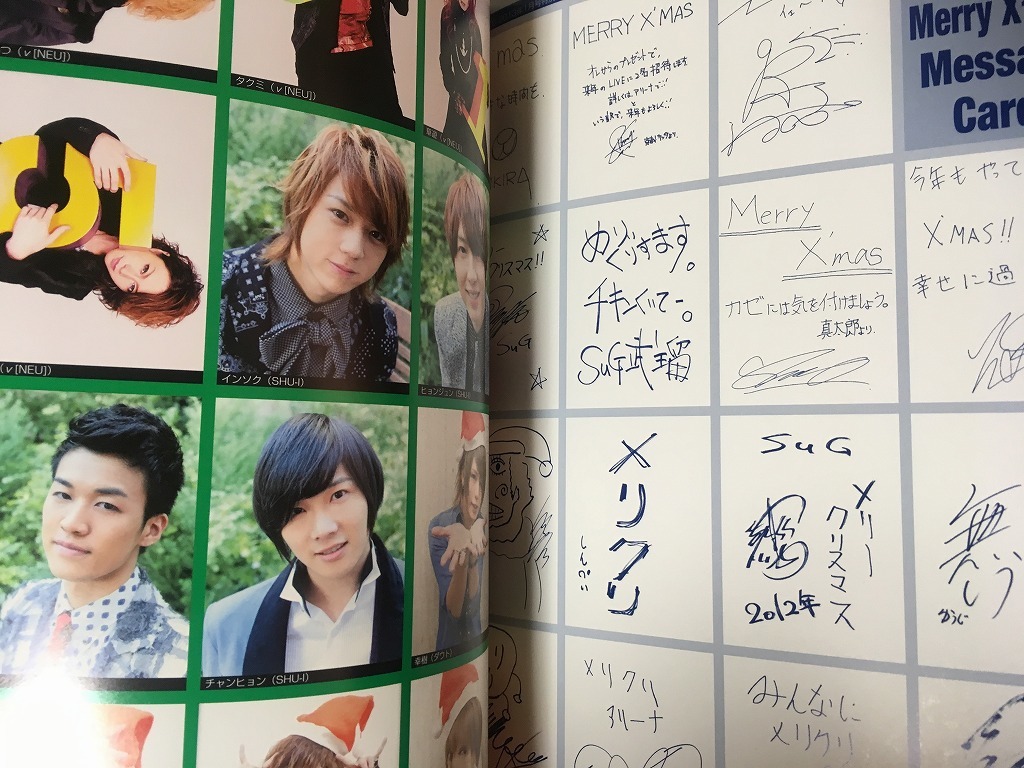 つ (ν[NEU])
タクミ (ν[NEU])
(ν[NEU])
(ν[NEU])
インソク (SHU-I)
ヒョンジュン (SHU-I)
チャンヒョン (SHU-I)
幸樹 (ダウト)
mas
な時間を.
KIRA.
MERRY X'MAS
オレからのプレゼントで、
来年のLIVEに2名招待します
詳しくはアリーナで…
と
いう訳で、来年もよろしく!!
Merry X
Messa
Card
リー
クリスマス!!
SuG
めりくりすます。
チキンくいてー。
SuG武瑠
Merry
X'mas
カゼには気を付けましょう。
真太郎より.
今年もやって
X'MAS!!
幸せに過
メリクリ
しんぺい
SuG
メリー
クリスマス
2012年
ゆうじ
メリクリ
アリーナ
みんなに
メリクリ!